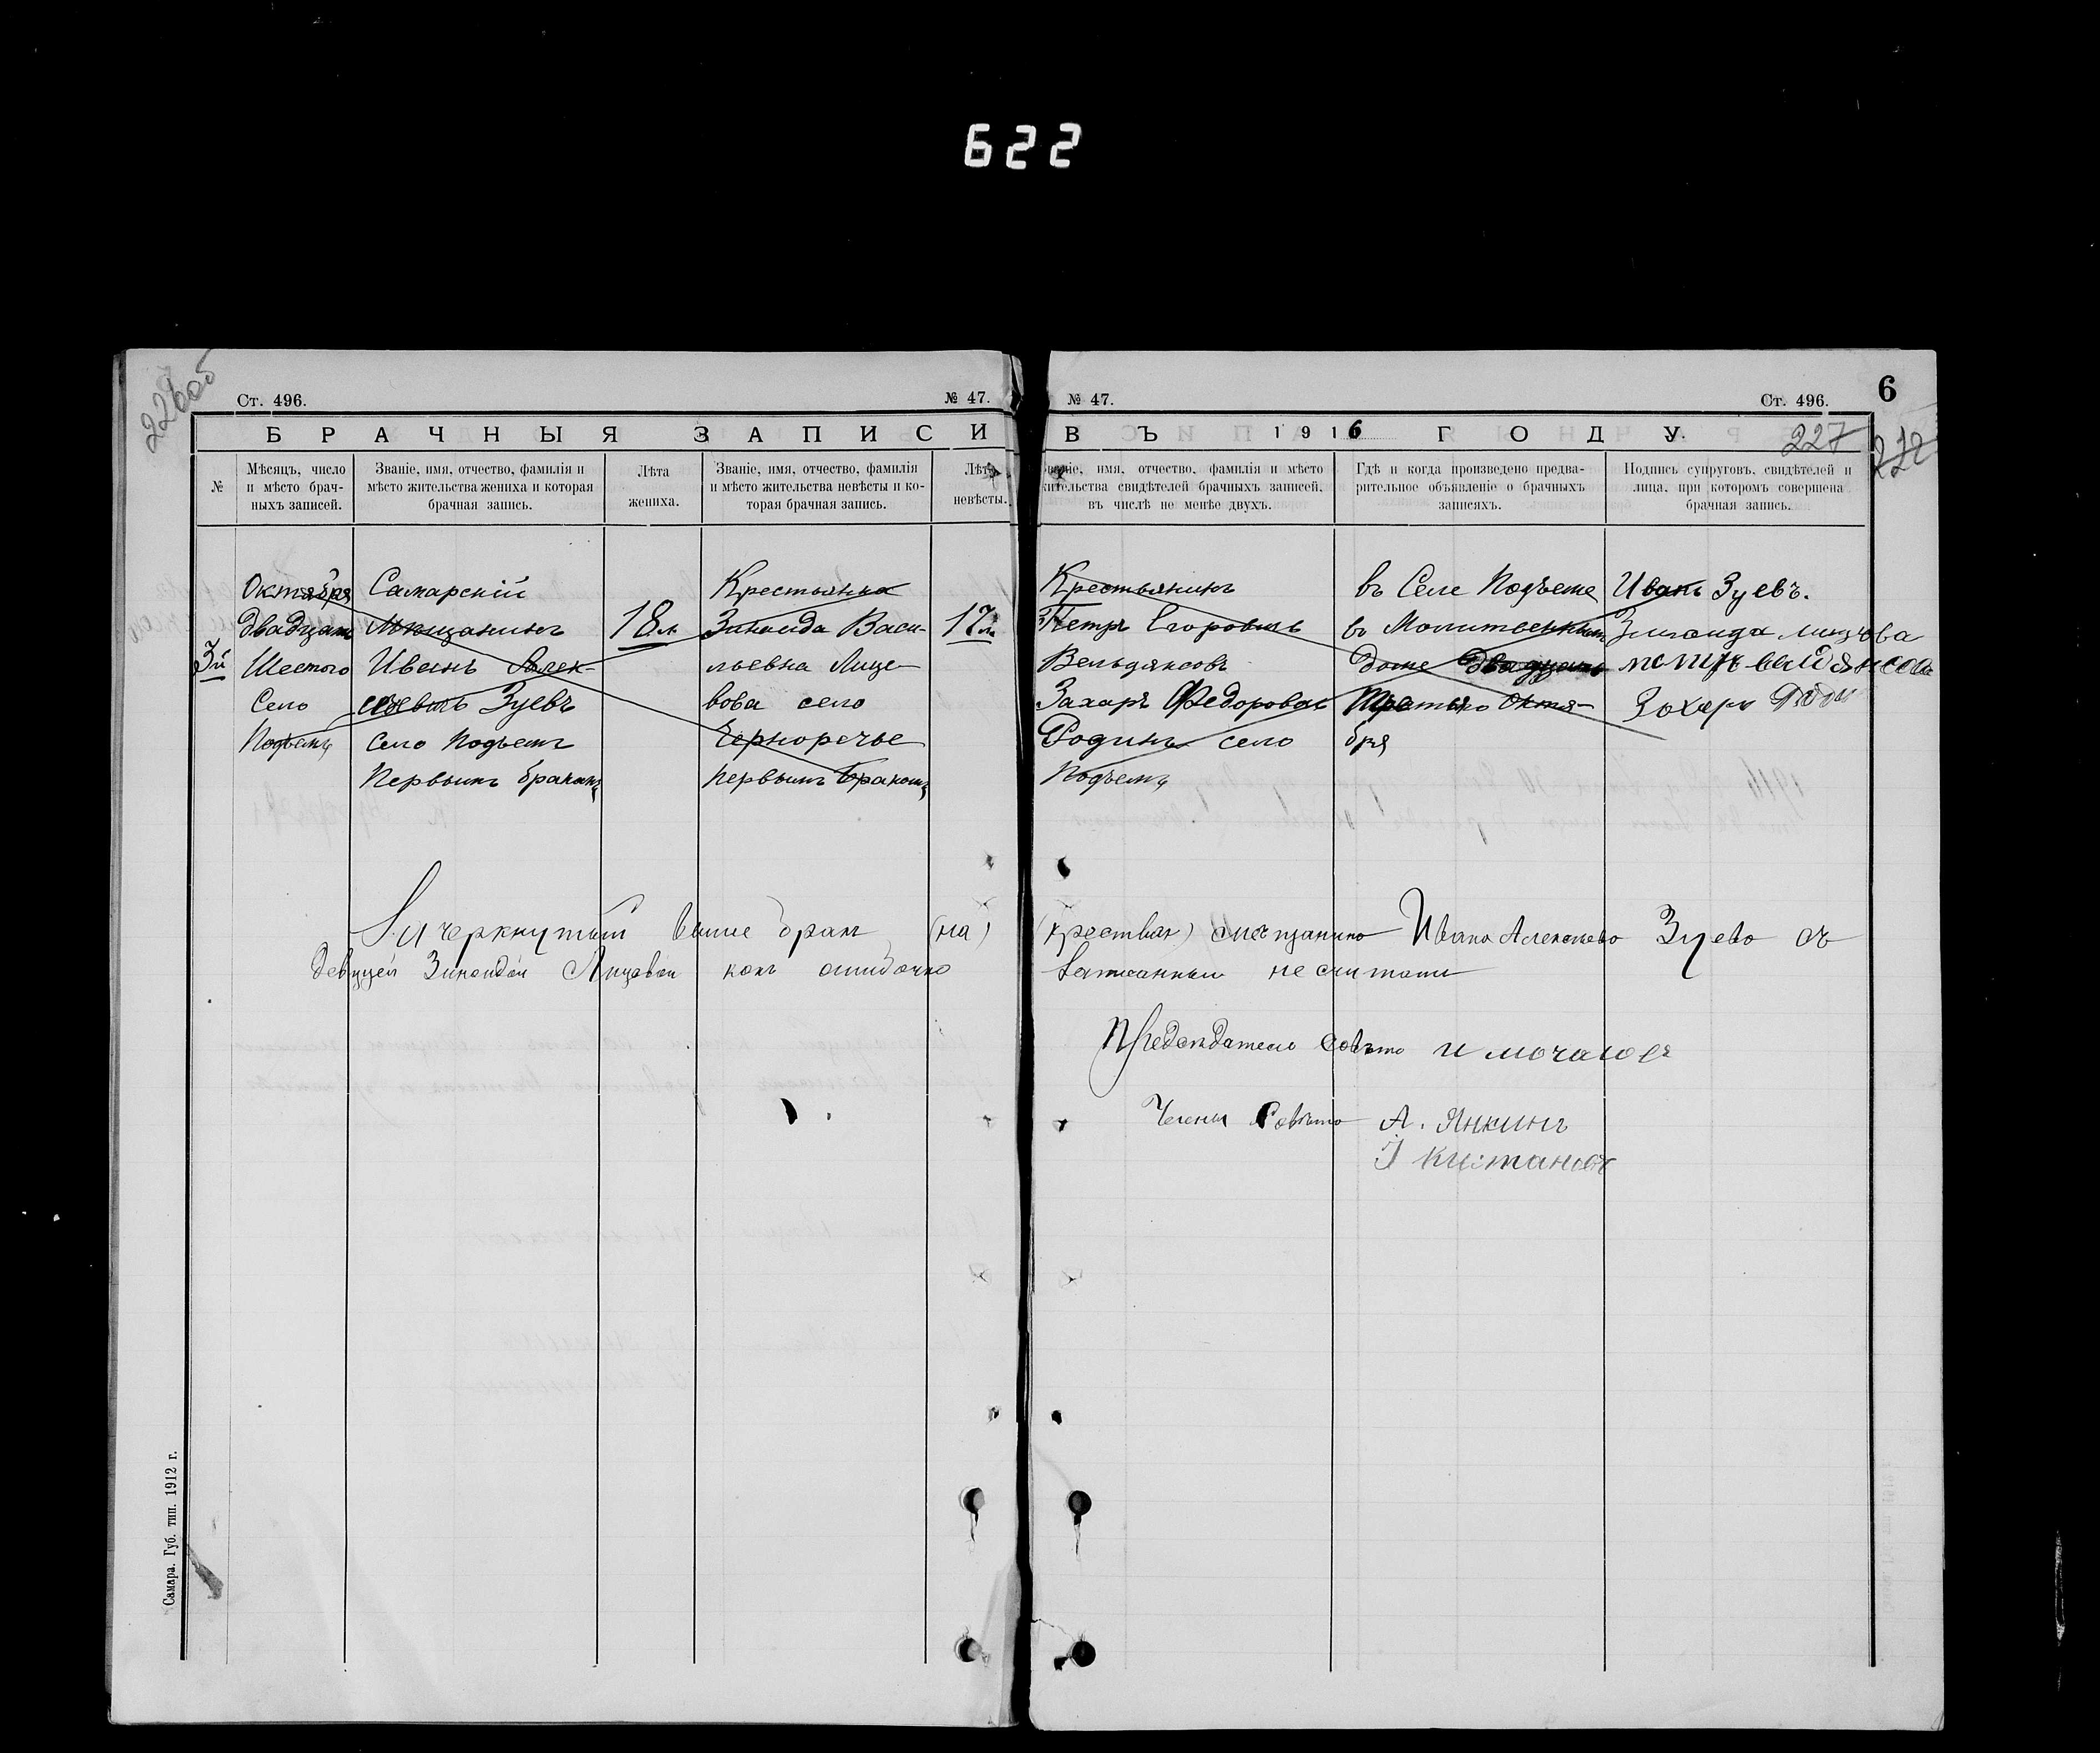 622
226об
Ст. 496.
№ 47.
БРАЧНЫЯ ЗАПИСИ
№
Мѣсяцъ, число
и мѣсто брач-
ныхъ записей.
Званіе, имя, отчество, фамилія и
мѣсто жительства жениха и которая
брачная запись.
Лѣта
жениха.
Званіе, имя, отчество, фамилія
и мѣсто жительства невѣсты и ко-
торая брачная запись.
Лѣта
невѣсты.
3й
Октября
Двадцать
Шестого
Село
Подъемъ
Самарскій
Мѣщанинъ
Иванъ Алек-
сѣевичъ Зуевъ
село Подъемъ
Первымъ бракомъ
18 л.
Крестьянка
Зинаида Васи-
льевна Лице-
вова село
Черноречье
первымъ бракомъ
17 л.
№ 47.
Ст. 496.
6
ВЪ 1916 ГОДУ.
227
имя, отчество, фамилія и мѣсто
жительства свидѣтелей брачныхъ записей,
въ числѣ не менѣе двухъ.
Гдѣ и когда произведено предва-
рительное объявленіе о брачныхъ
записяхъ.
Подпись супруговъ, свидѣтелей и
лица, при которомъ совершена
брачная запись.
Крестьянинъ
Петръ Егоровичъ
Вельдяксовъ
Захаръ Федоровичъ
Родинъ село
Подъемъ
въ Селе Подъеме
въ Молитвенномъ
доме Двадцать
Третьяго Октя-
бря
Иванъ Зуевъ.
Зинаида
Захаръ
Зачеркнутый выше брак (на) (крестьян) мещанина Ивана Алексеева Зуева съ
девицей Зинаидой Лицевой какъ ошибочно записанный не считать
Председатель совета И Мочалов
Члены Совета А. Янкинъ
Кистановъ
Самара. Губ. тип. 1912 г.